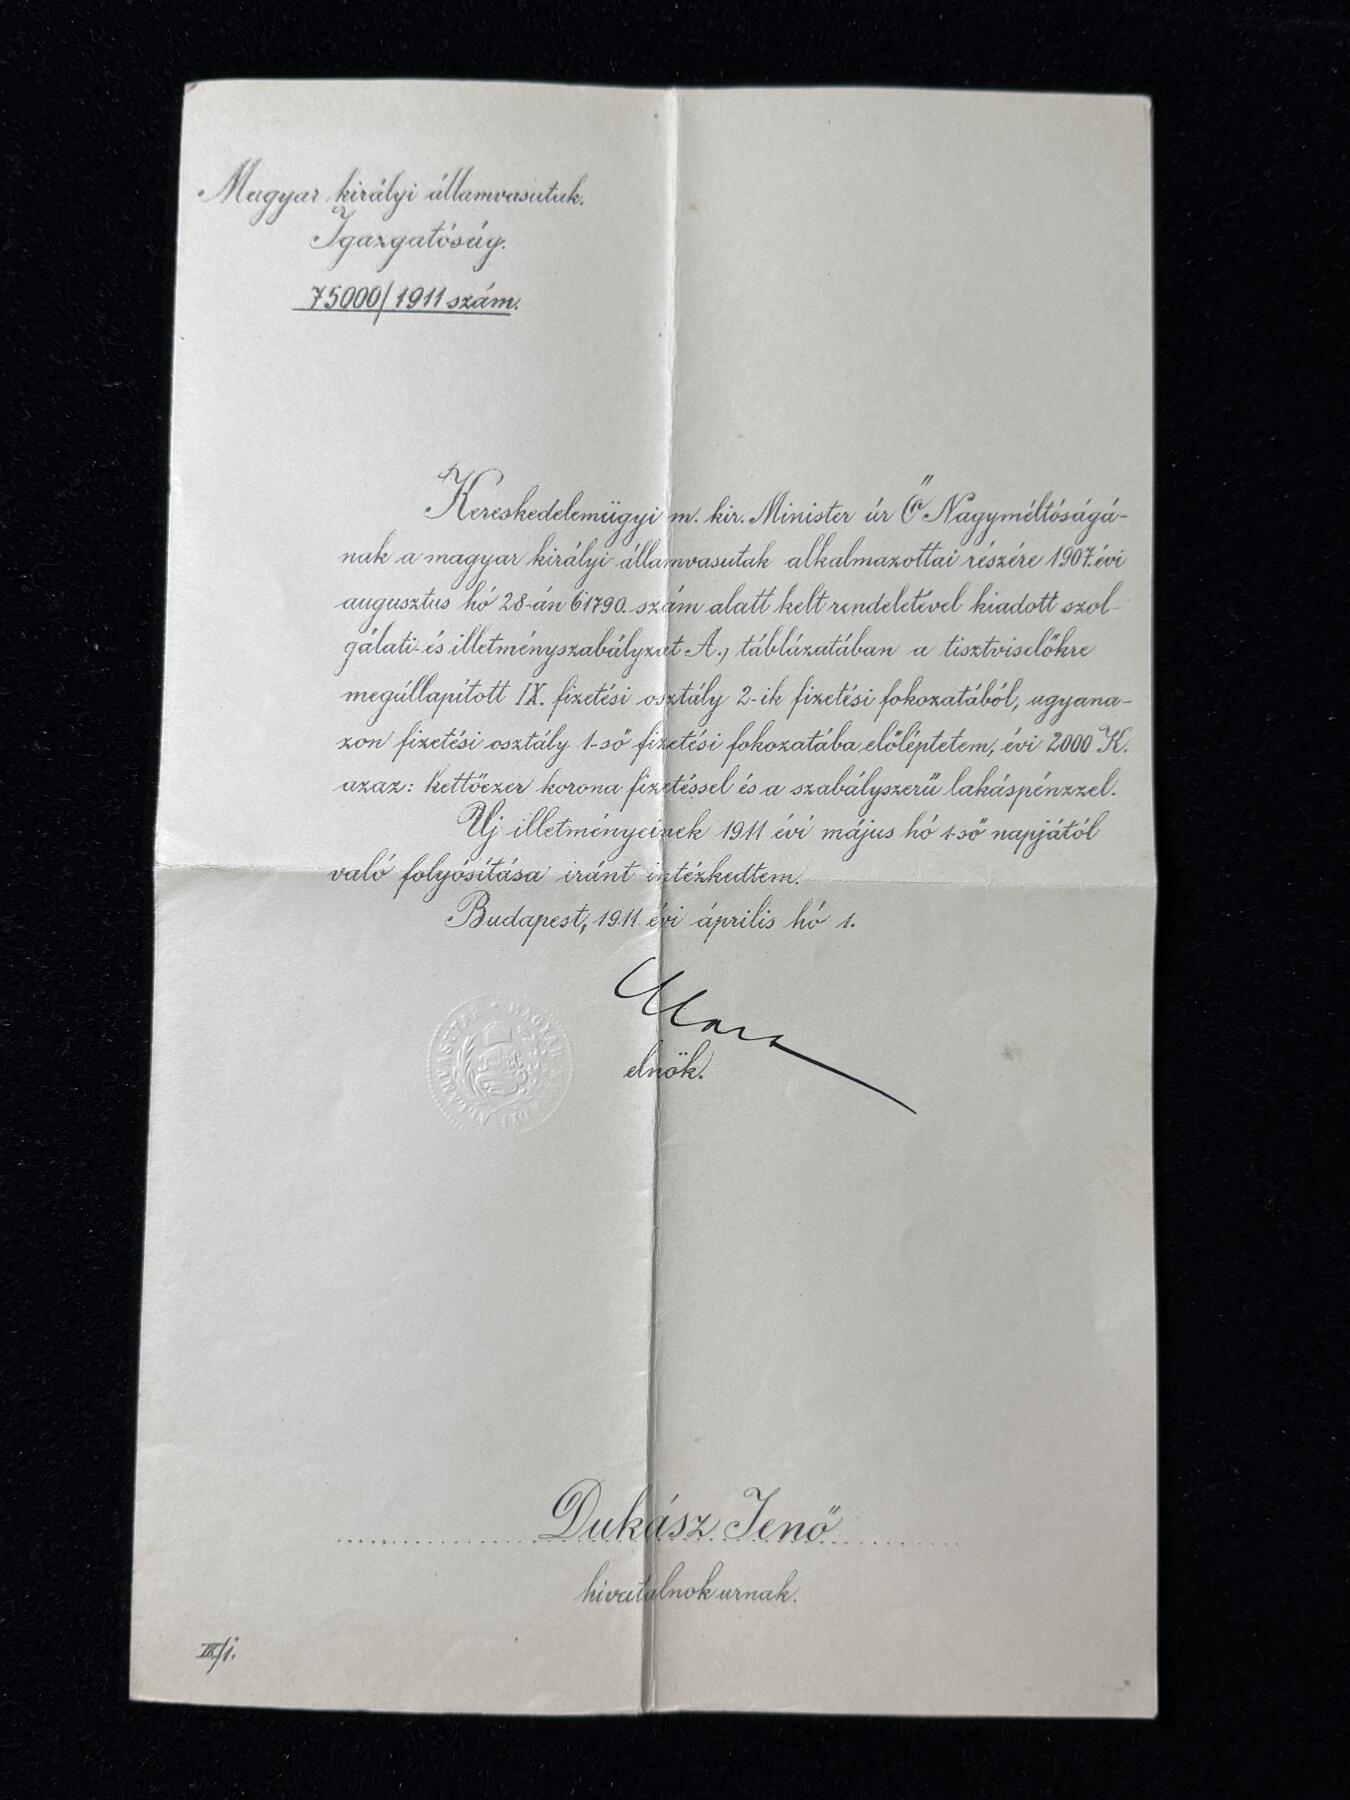 Magyar királyi államvasutak.
Igazgatóság.
75000/1911 szám.
Kereskedelemügyi m. kir. Minister úr Ő Nagyméltóságá-
nak a magyar királyi államvasutak alkalmazottai részére 1907. évi
augusztus hó 28-án 61790. szám alatt kelt rendeletével kiadott szol-
gálati- és illetményszabályzat A., táblázatában a tisztviselőkre
megállapított IX. fizetési osztály 2-ik fizetési fokozatából, ugyana-
zon fizetési osztály 1-ső fizetési fokozatába előléptetem, évi 2000 K.
azaz: kettőezer korona fizetéssel és a szabályszerű lakáspénzzel.
Uj illetményeinek 1911 évi május hó 1-ső napjától
való folyósítása iránt intézkedtem.
Budapest, 1911 évi április hó 1.
MAGYAR
elnök.
Dukász Jenő
hivatalnok urnak.
IX/1.